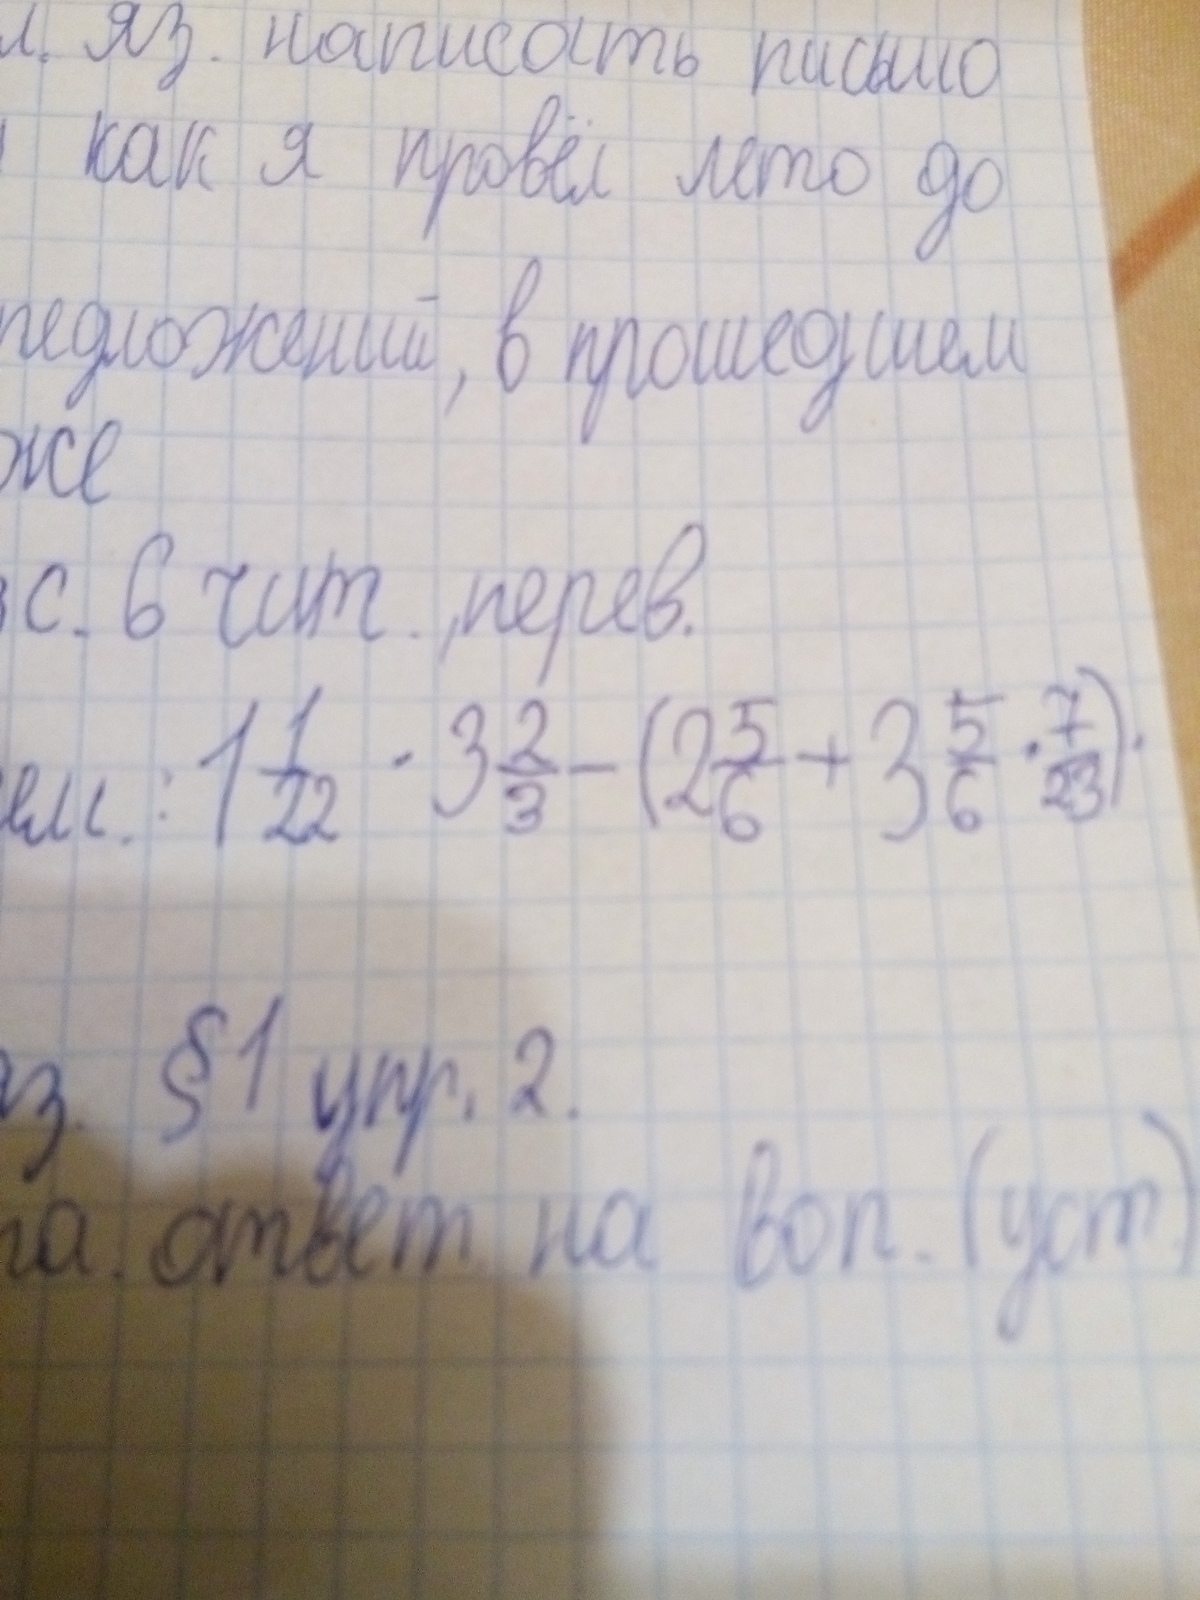 л. яз. написать письмо
как я провёл лето до
предложений, в прошедшем
же
с. 6 чит., перев.
: 1 1/22 · 3 2/3 - (2 5/6 + 3 5/6 · 7/23) ·
яз. §1 упр. 2.
ответ на воп. (уст)